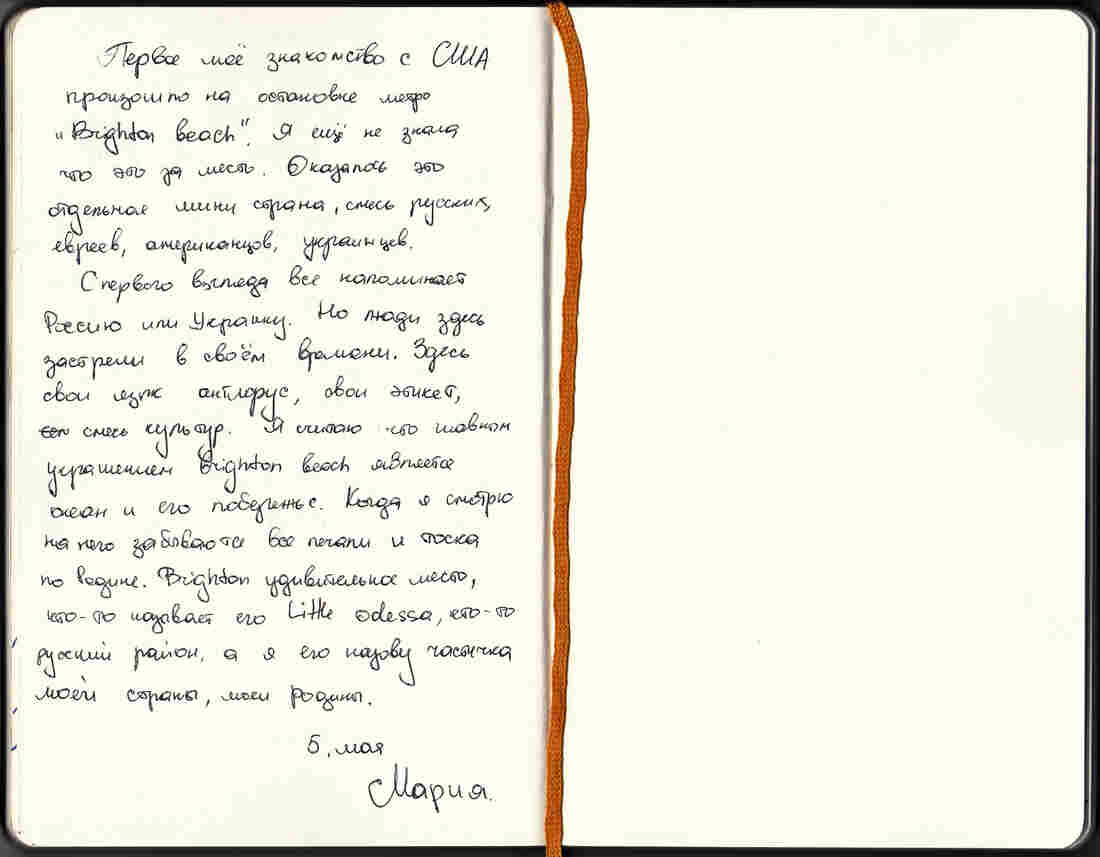 Первое моё знакомство с США
произошло на остановке метро
"Brighton beach". Я ещё не знала
что это за место. Оказалось это
отдельная мини страна, смесь русских,
евреев, американцов, украинцев.
С первого взгляда все напоминает
Россию или Украину. Но люди здесь
застряли в своём времени. Здесь
свои язык англорус, свои этикет,
смесь культур. Я считаю что главным
украшением Brighton beach является
океан и его побережье. Когда я смотрю
на него забываются все печали и тоска
по Родине. Brighton удивительное место,
кто-то называет его Little odessa, кто-то
русский район, а я его назову частичка
моей страны, моей родины.
5, мая
Мария.